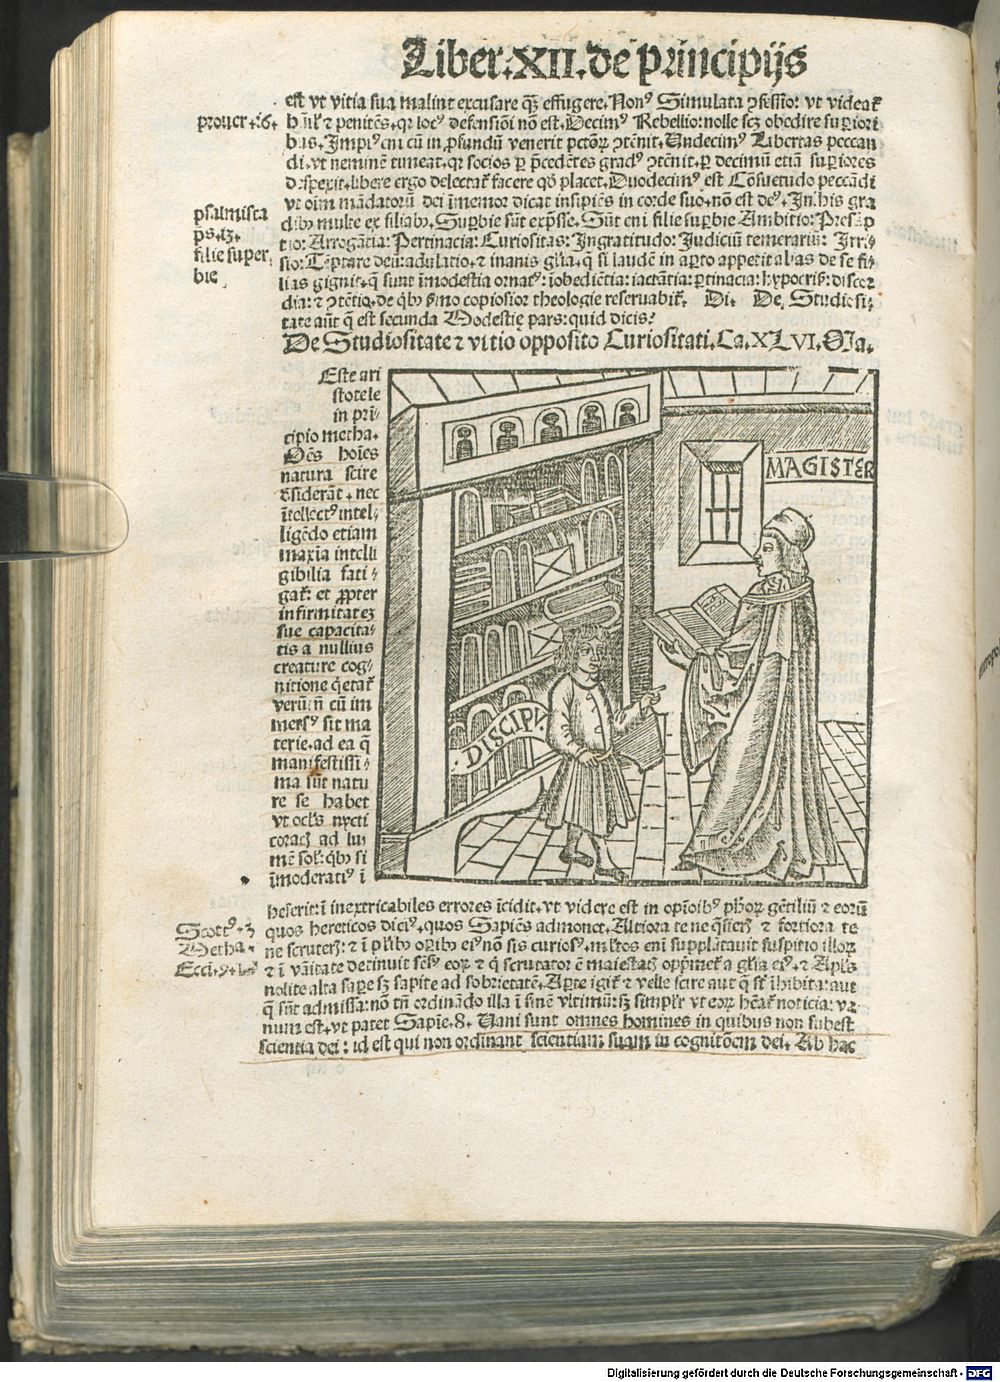 Liber.XII.de principijs
est vt vitia sua malint excusare qꝫ effugere.Non⁹ Simulata ꝯfessio: vt videat᷑
prouer.i6.
hu᷑il᷑ & penitēs.qr loc⁹ defensiōi nō est.Decim⁹ Rebellio:nolle scꝫ obedire suꝑiori
bus.Impi⁹ eni cū in ꝓfundū venerit pctōꝝ ꝯtēnit.Undecim⁹ Libertas peccan
di.vt neminē timeat.qr socios ꝑ p̄cedētes grad⁹ ꝯtēnit.ꝑ decimū etiā suꝑiores
despexit.libere ergo delectat᷑ facere qō placet.Duodecim⁹ est Cōsuetudo peccādi
vt oim̄ mādatorū dei īmemor dicat insipiēs in corde suo.nō est de⁹. In his gra
psalmista
ps.i3.
filie super
bie
dibꝰ multe ex filiabꝰ Suꝑbie sūt exp̄sse. Sūt eni filie suꝑbie Ambitio: Presūp
tio: Arrogātia: Pertinacia: Curiositas: Ingratitudo: Judiciū temerariū: Irri⸗
sio: Tēptare deū: adulatio. & inanis gl̄ia.q̄ si laudē in aꝑto appetit alias de se fi⸗
lias gignit.q̄ sunt īmodestia ornat⁹: īobediētia: iactātia: ꝑtinacia: hypocris᷑: discor
dia: & ꝯtētio.de qbꝰ ẜmo copiosior theologie reseruabit᷑. Di. De Studiosi⸗
tate aūt q̄ est secunda Modestię pars: quid dicis?
De Studiositate & vitio opposito Curiositati.Ca.XLVI.Ma.
Este ari
stotele
in pri⸗
cipio metha.
Oēs hoīes
natura scire
desiderāt. nec
ītellect⁹ intel⸗
ligēdo etiam
maxīa intelli
gibilia fati⸗
gat᷑: et ꝓpter
infirmitateꝫ
sue capacita⸗
tis a nullius
creature cog⸗
nitione q̇etat᷑
verūtn̄ cū im
mers⁹ sit ma
terie.ad ea q̄
manifestissi⸗
ma sūt natu
re se habet
vt ocl̄s nycti
coracꝭ ad lu⸗
mē sol᷑: qbꝰ si
īmoderati⁹ ī
MAGISTER
DISCIPV.
heserit: ī inextricabiles errores īcidit.vt videre est in opīoibꝰ ph̄oꝝ gētiliū & eorū
Scot⁹.3
Metha.
quos hereticos dici⁹.quos Sapiēs admonet. Altiora te ne q̄sier᷑ & fortiora te
ne scruter᷑: & ī pl̄ibꝰ oꝑibꝰ ei⁹ nō sis curios⁹.ml̄tos eni supplātauit suspitio illoꝝ
& ī vāitate detinuit sēs⁹ eoꝝ & q̄ scrutator ē maiestatꝭ opprimet᷑ a gl̄ia ei⁹. & Apl̄s
nolite alta saꝑe sꝫ sapite ad sobrietatē. Aꝑte igit᷑ & velle scire aut q̄ st᷑ īhibita: aut
q̄ sūt admissa: nō tn̄ ordināDo illa ī finē vltimū: sꝫ simpl᷑r vt eoꝝ hēat᷑ noticia: va
num est.vt patet Sapiē.8. Uani sunt omnes homines in quibus non subest
scientia dei: id est qui non ordinant scientiam suam in cognitōem dei. Ab hac
Digitalisierung gefördert durch die Deutsche Forschungsgemeinschaft - DFG